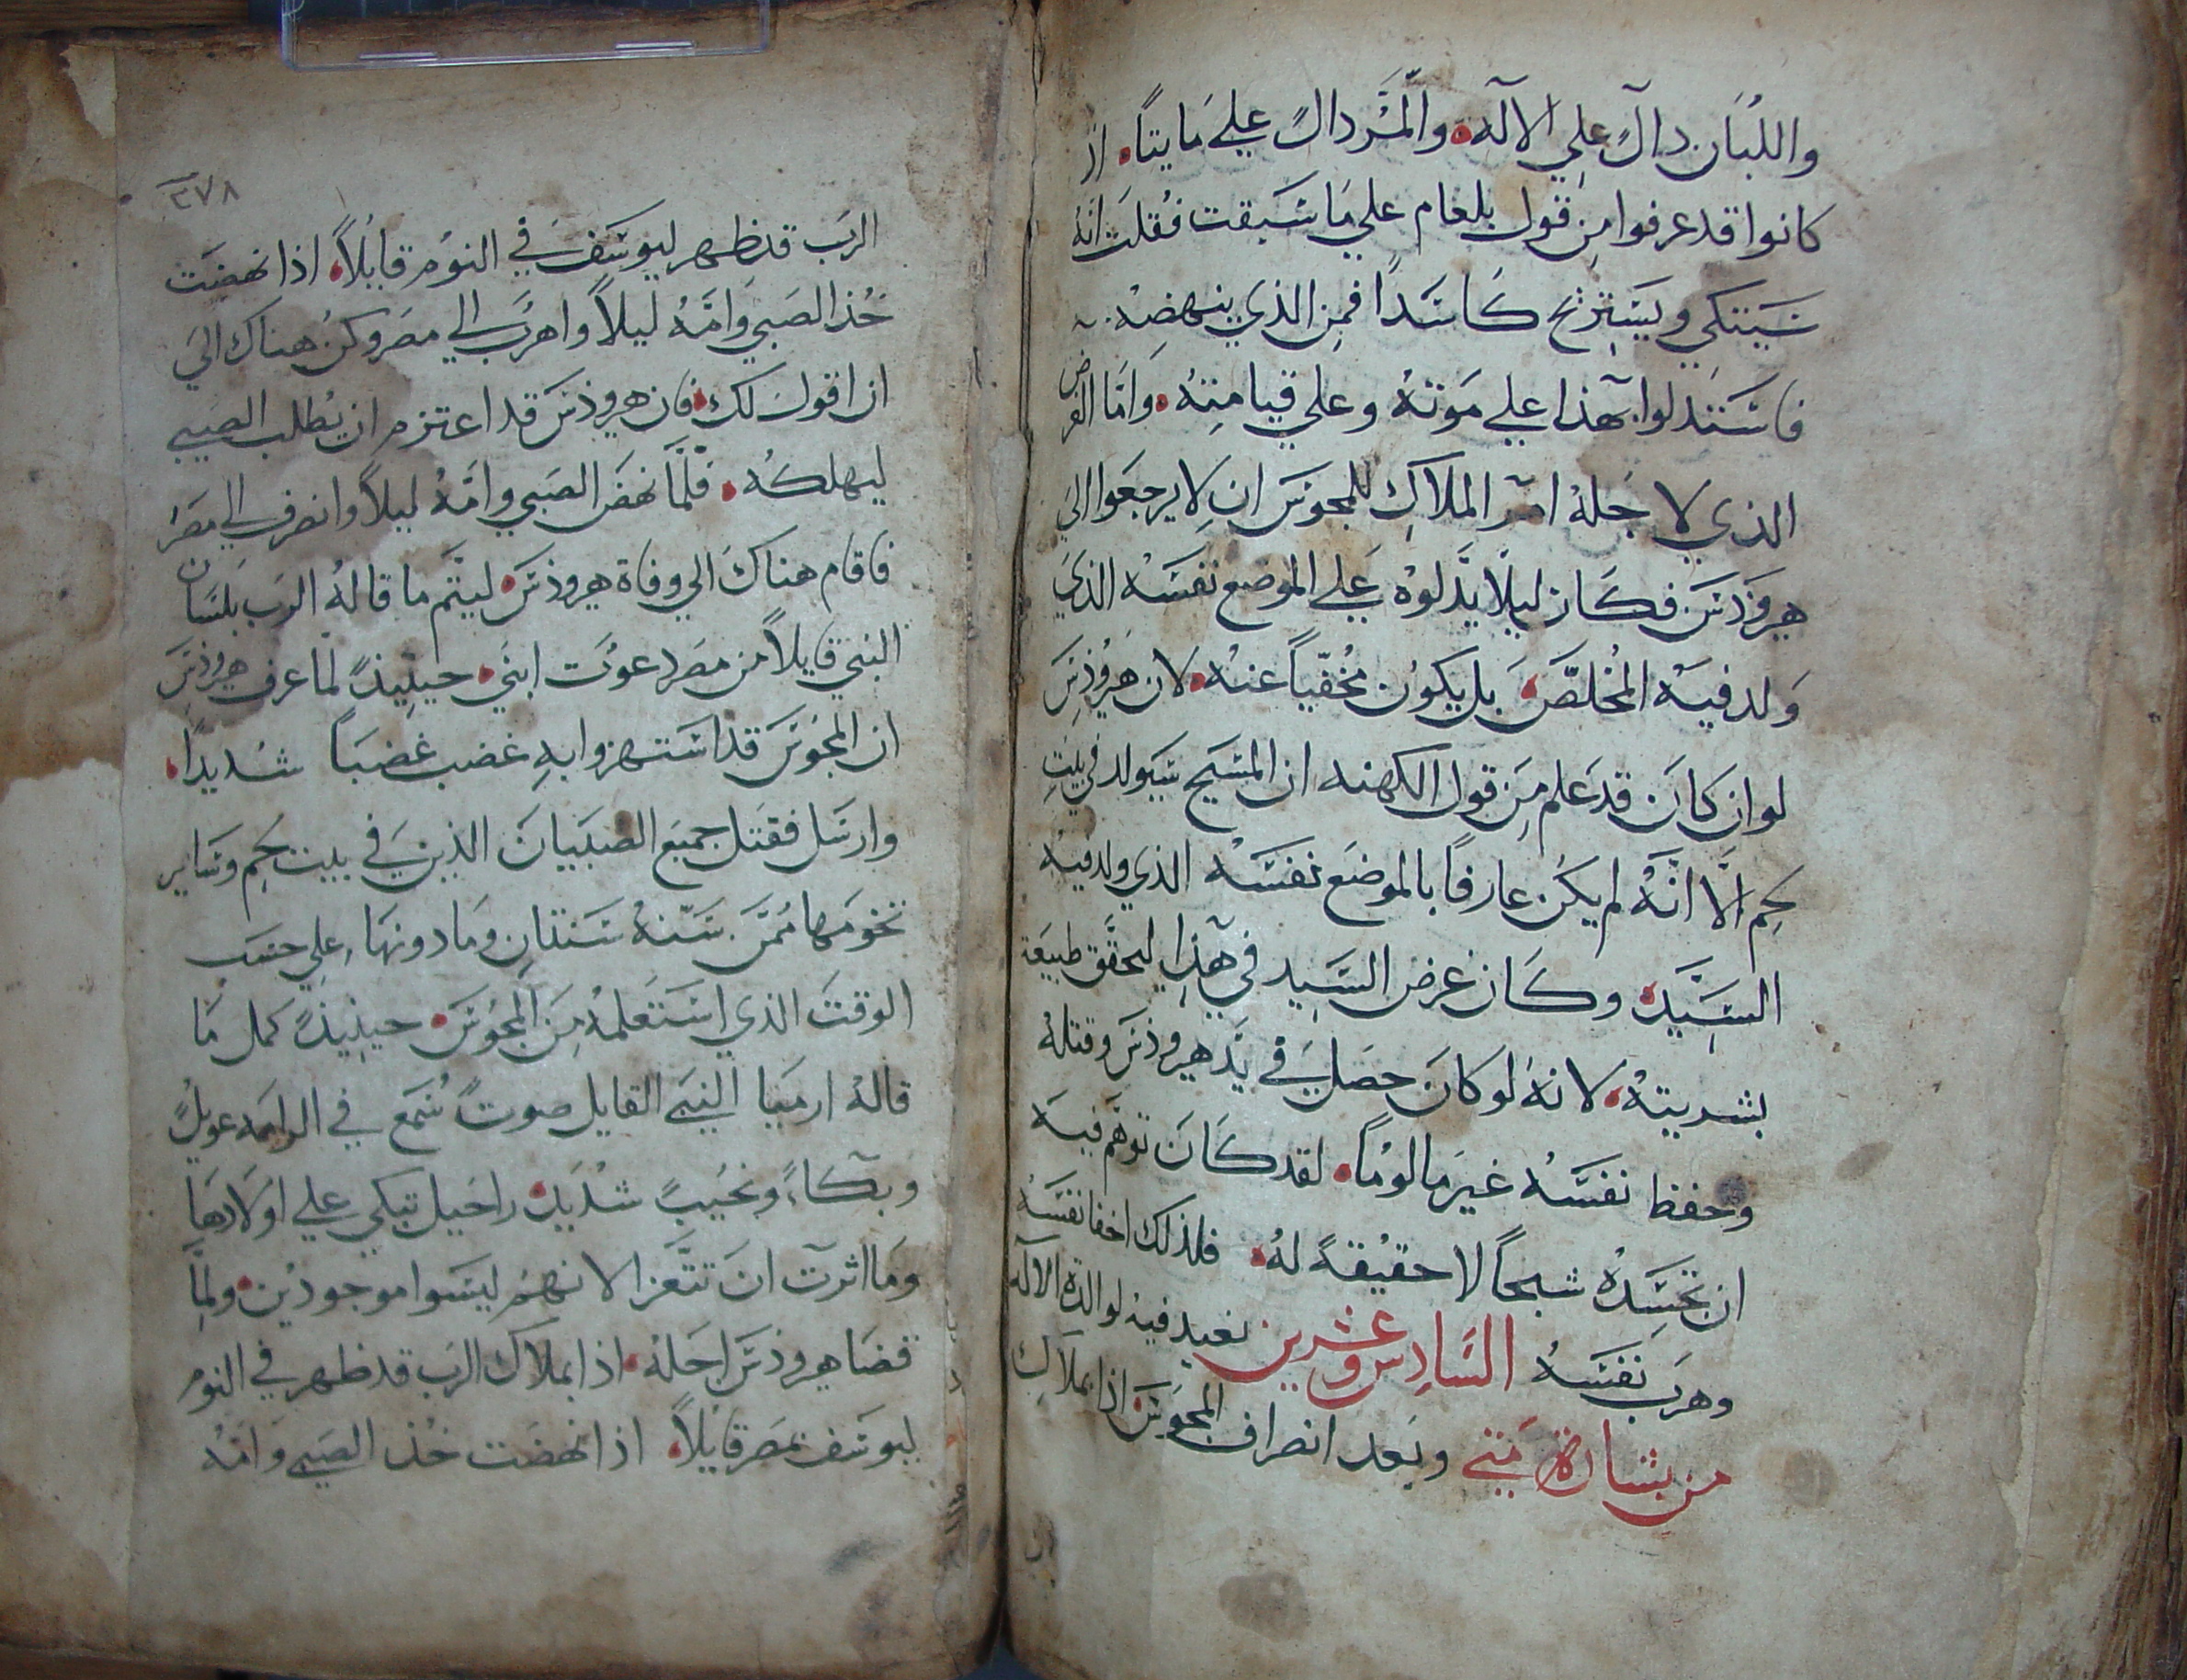 واللبان دالٌ علي الاله. والمُر دالٌ علي مايتاً. اذ
كانوا قد عرفوا من قول بلعام علي ما سبقت فقلت انه
سيتكي ويستريح كاسداً فمن الذي ينهضه.
فاستدلوا بهذا علي موته وعلي قيامته. واما الغرض
الذي لاجله امر الملاك للمجوس ان لا يرجعوا الي
هيروذس فكان ليلا يدلوه علي الموضع نفسه الذي
ولد فيه المخلص. بل يكون مخفياً عنه. لان هيروذس
لو ان كان قد علم من قول الكهنه ان المسيح سيولد في بيت
لحم الا انه لم يكن عارفاً بالموضع نفسه الذي ولد فيه
السيد. وكان غرض السيد في هذا ليحقق طبيعة
بشريته. لانه لو كان حصل في يد هيروذس وقتله
وحفظ نفسه غير مالوماً. لقد كان توهم فيه
ان تجسده شبحاً لا حقيقةً له. فلذلك اخفا نفسه
وهرب نفسه السادس وعشرين نعيد فيه لوالدة الاله
من بشارة متي وبعد انصراف المجوس. اذا بملاك
٣٧٨
الرب قد ظهر ليوسف في النوم قايلاً. اذا نهضت
خذ الصبي وامه ليلاً واهرب الي مصر وكن هناك الي
ان اقول لك. فان هيروذس قد اعتزم ان يطلب الصبي
ليهلكه. فلما نهض الصبي وامه ليلاً وانصرف الي مصر
فاقام هناك الي وفاة هيروذس. ليتم ما قاله الرب بلسان
النبي قايلاً من مصر دعوت ابني. حينيذٍ لما عرف هيروذس
ان المجوس قد استهزوا به غضب غضباً شديداً.
وارسل فقتل جميع الصبيان الذين في بيت لحم وساير
تخومها ممن سنه سنتان وما دونها، علي حسب
الوقت الذي استعلمه من المجوس. حينيذٍ كمل ما
قاله ارميا النبي القايل صوتٌ سُمع في الرامه عويلٌ
وبكاءٌ ونحيبٌ شديد. راحيل تبكي علي اولادها
وما اثرت ان تتعزا لانهم ليسوا موجودين. ولما
قضا هيروذس اجله. اذا بملاك الرب قد ظهر في النوم
ليوسف بمصر قايلاً. اذا نهضت خذ الصبي وامه